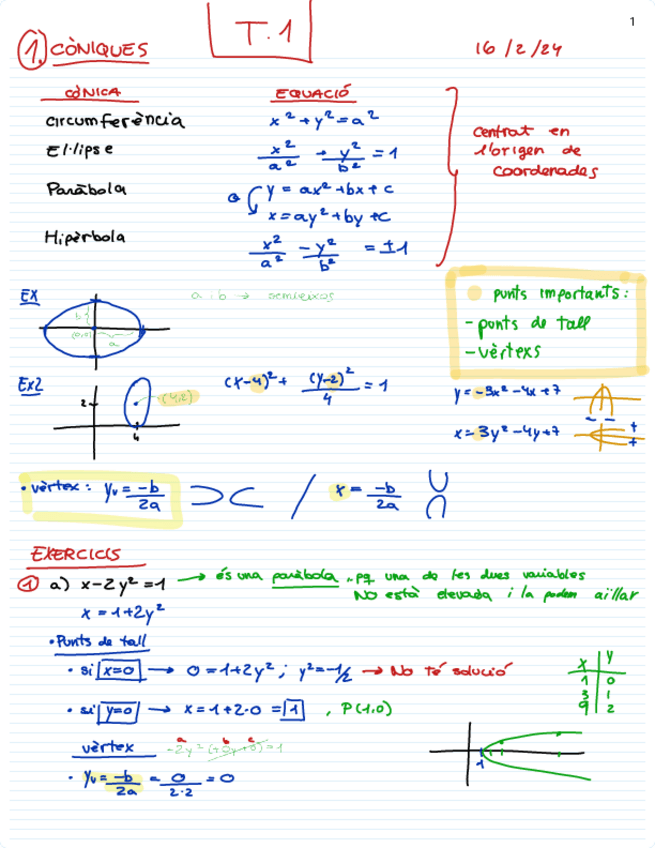 1
T.1
1. CÒNIQUES
16/2/24
CÒNICA EQUACIÓ
circumferència x² + y² = a²
El·lipse x²/a² + y²/b² = 1
Paràbola y = ax² + bx + c
x = ay² + by + c
Hipèrbola x²/a² - y²/b² = ±1
Centrat en
l'origen de
coordenades
EX
a i b → semieixos
b
(0,0)
a
punts importants:
- punts de tall
- vèrtexs
Ex2
2
(4,2)
4
(x-4)² + (y-2)²/4 = 1
y = -3x² - 4x + 7
x = 3y² - 4y + 7
- -
+
+
• vèrtex: yv = -b/2a / x = -b/2a
EXERCICIS
1 a) x - 2y² = 1 → és una paràbola, pq una de les dues variables
NO està elevada i la podem aïllar
x = 1 + 2y²
• Punts de tall
• si x=0 → 0 = 1 + 2y² ; y² = -1/2 → No té solució
• si y=0 → x = 1 + 2·0 = 1 , P(1,0)
x y
1 0
3 1
9 2
vèrtex
a b c
-2y² (+0y+0) = 1
• yv = -b/2a = 0/2·2 = 0
1